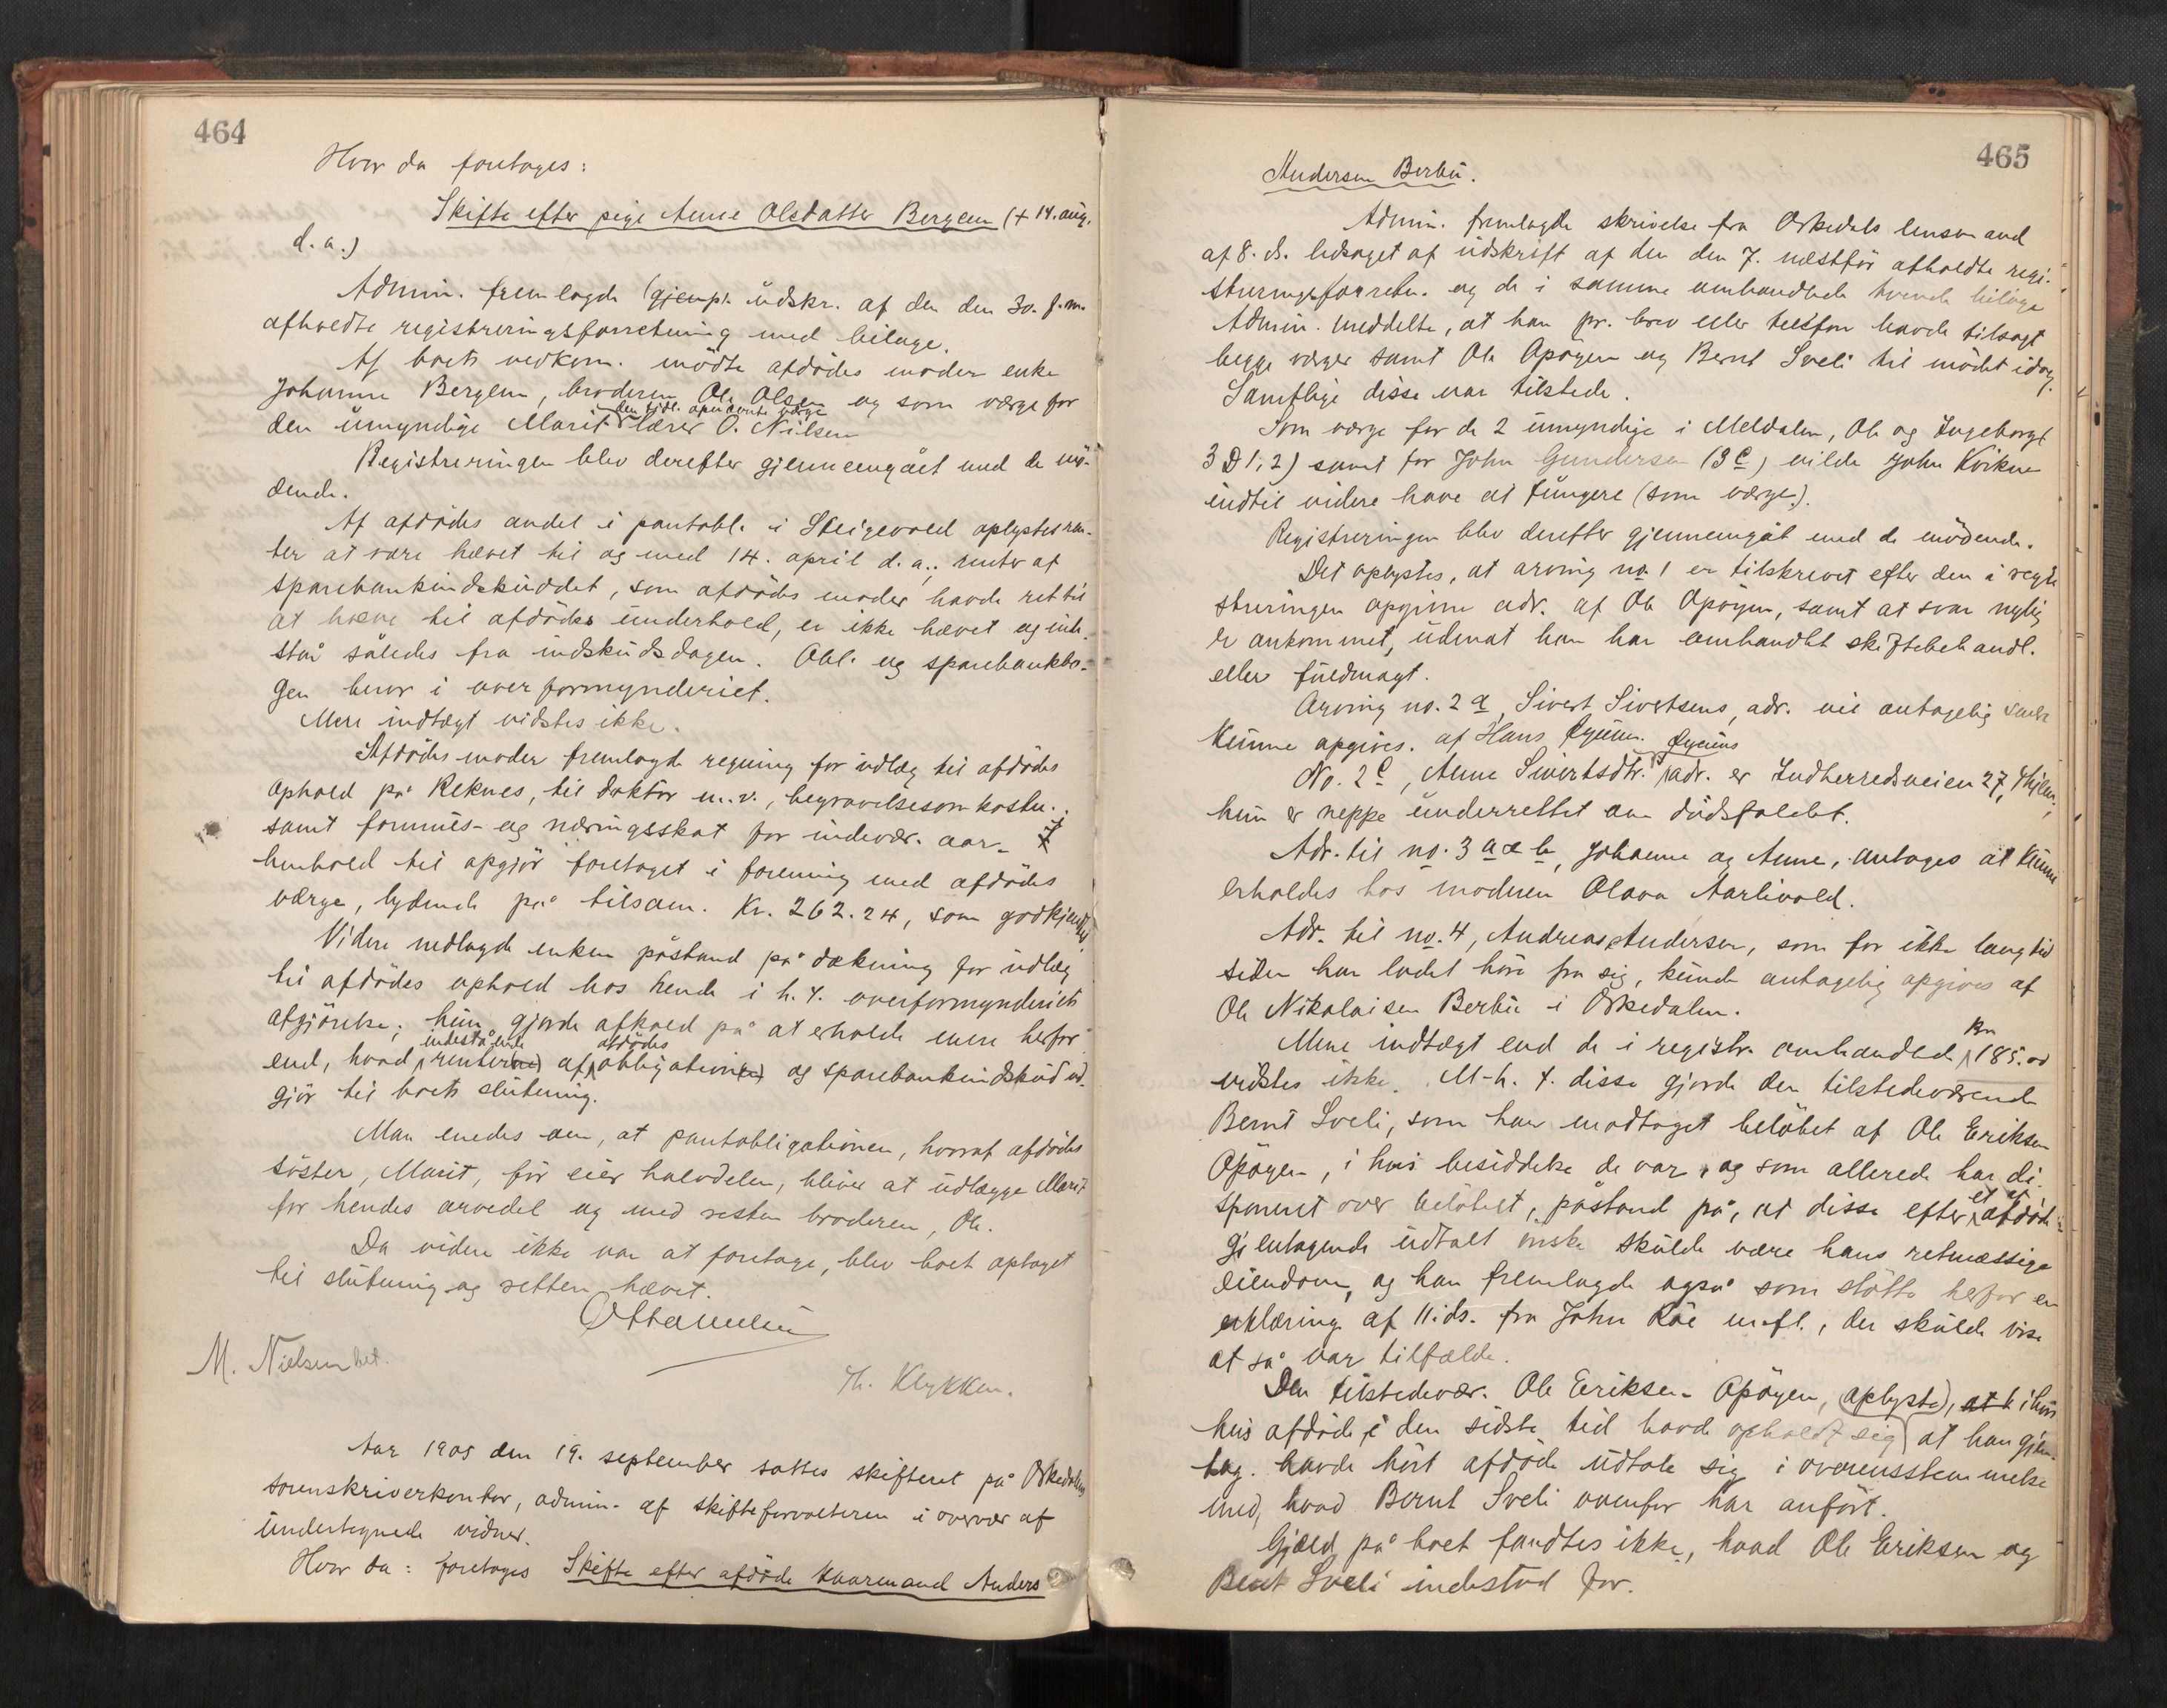 464
Hvor da foretages:
Skifte efter pige Anne Olsdatter Bergem (+ 14. aug.
d. a.)
Admin. fremlagde (gjenp. udskr. af den den 30. f.m.
afholdte registreringsforretning med bilage.
Af boets vedkom. mødte afdødes moder enke
Johanne Bergem, broderen Ole Olsen og som værge for
den umyndige Marit den tidl. opnævnte værge lærer O. Nilsen
Registreringen blev derefter gjennemgået med de mø-
dende.
Af afdødes andel i pantobl. i Steigevold oplystes ren-
ter at være hævet til og med 14. april d. a.; renter af
sparebankindskuddet, som afdødes moder havde ret til
at hæve til afdødes underhold, er ikke hævet og inde-
står således fra indskudsdagen. Obl. og sparebankbo-
gen beror i overformynderiet.
Mere indtægt vidstes ikke.
Afdødes moder fremlagde regning for udlæg til afdødes
ophold på Reknes, til doktor m. v., begravelsesomkostn.
samt formues- og næringsskat for indevær. aar - I
henhold til opgjør foretaget i forening med afdødes
værge, lydende på tilsam. Kr. 262.24, som godkjendtes
Videre nedlagde enken påstand på dækning for udlæg
til afdødes ophold hos hende i h. t. overformynderiets
afgjørelse; hun gjorde afkald på at erholde mere herfor
end, hvad indestående renter(ne) af afdødes obligation(en) og sparebankindskud ud-
gjør til boets slutning.
Man enedes om, at pantobligationen, hvoraf afdødes
søster, Marit, før eier halvdelen, bliver at udlægge Marit
for hendes arvedel og med resten broderen, Ole.
Da videre ikke var at foretage, blev boet optaget
til slutning og retten hævet.
M. Nielsen
Th. Klykken.
Aar 1905 den 19. september sattes skifteret på Orkedalens
sorenskriverkontor, admin. af skifteforvalteren i overvær af
undertegnede vidner.
Hvor da: foretages Skifte efter afdøde kaarmand Anders
465
Andersen Berbu.
Admin. fremlagde skrivelse fra Orkedals lensmand
af 8. ds. ledsaget af udskrift af den den 7. næstfør afholdte regi-
streringsforretn. og de i samme omhandlede tvende bilage
Admin. meddelte, at han pr. brev eller telefon havde tilsagt
begge værger samt Ole Opøyen og Bernt Sveli til mødet idag.
Samtlige disse var tilstede.
Som værge for de 2 umyndige i Meldalen, Ole og Ingeborg
3 D 1, 2) samt for John Gundersen (3 C) vilde John Kvikne
indtil videre have at fungere (som værge).
Registreringen blev derefter gjennemgåt med de mødende.
Det oplystes, at arving no 1 er tilskrevet efter den i regi-
streringen opgivne adr. af Ole Opøyen, samt at svar nylig
er ankommet, udenat han har omhandlet skiftebehandl.
eller fuldmagt.
Arving no. 2 a, Sivert Sivertsens, adr. vil antagelig
kunne opgives. af Hans
No. 2 C, Anne Sivertsdtr. adr. er Indherredsveien 27,
hun er neppe underrettet om dødsfaldet.
Adr. til no. 3 a & b, Johanne og Anne, antages at kunne
erholdes hos moderen Olava Aarlivold.
Adr. til no. 4, Andreas Andersen, som for ikke lang tid
siden har ladet høre fra sig, kunde antagelig opgives af
Ole Nikolaisen Berbu i Orkedalen.
Mere indtægt end de i registr. omhandlede Kr. 185.00
vidstes ikke. M. h. t. disse gjorde den tilstedeværende
Bernt Sveli, som har modtaget beløbet af Ole Eriksen
Opøyen, i hvis besiddelse de var, og som allerede har di-
sponeret over beløbet, påstand på, at disse efter et af afdøde
gjentagende udtalt ønske skulde være hans retmæssige
eiendom, og han fremlagde også som støtte herfor en
erklæring af 11. ds. fra John Röe m. fl., der skulde vise
at så var tilfælde.
Den tilstedevær. Ole Eriksen Opøyen, (oplyste), at i hvis
hus afdøde i den sidste tid havde opholdt sig at han gjen-
tag. havde hørt afdøde udtale sig i overensstemmelse
med, hvad Bernt Sveli ovenfor har anført.
Gjæld på boet fandtes ikke, hvad Ole Eriksen og
Bernt Sveli indestod for.